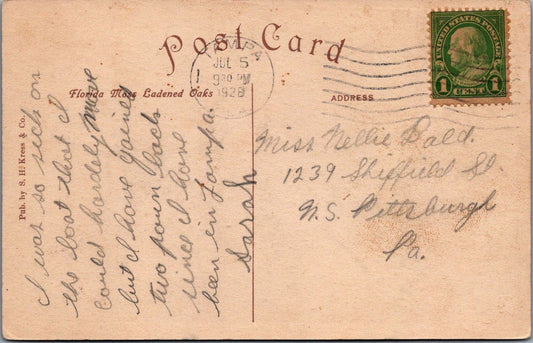 Post Card
TAMPA
JUL 5
930 PM
1928
UNITED STATES POSTAGE
1 CENT 1
Florida Moss Ladened Oaks
ADDRESS
Pub. by S. H. Kress & Co.
I was so sick on
the boat that I
could hardly move
but I have gained
two poun back
since I have
been in Tampa.
Sarah
Miss Nellie Dald.
1239 Sheffield St.
N.S. Pittsburgh
Pa.